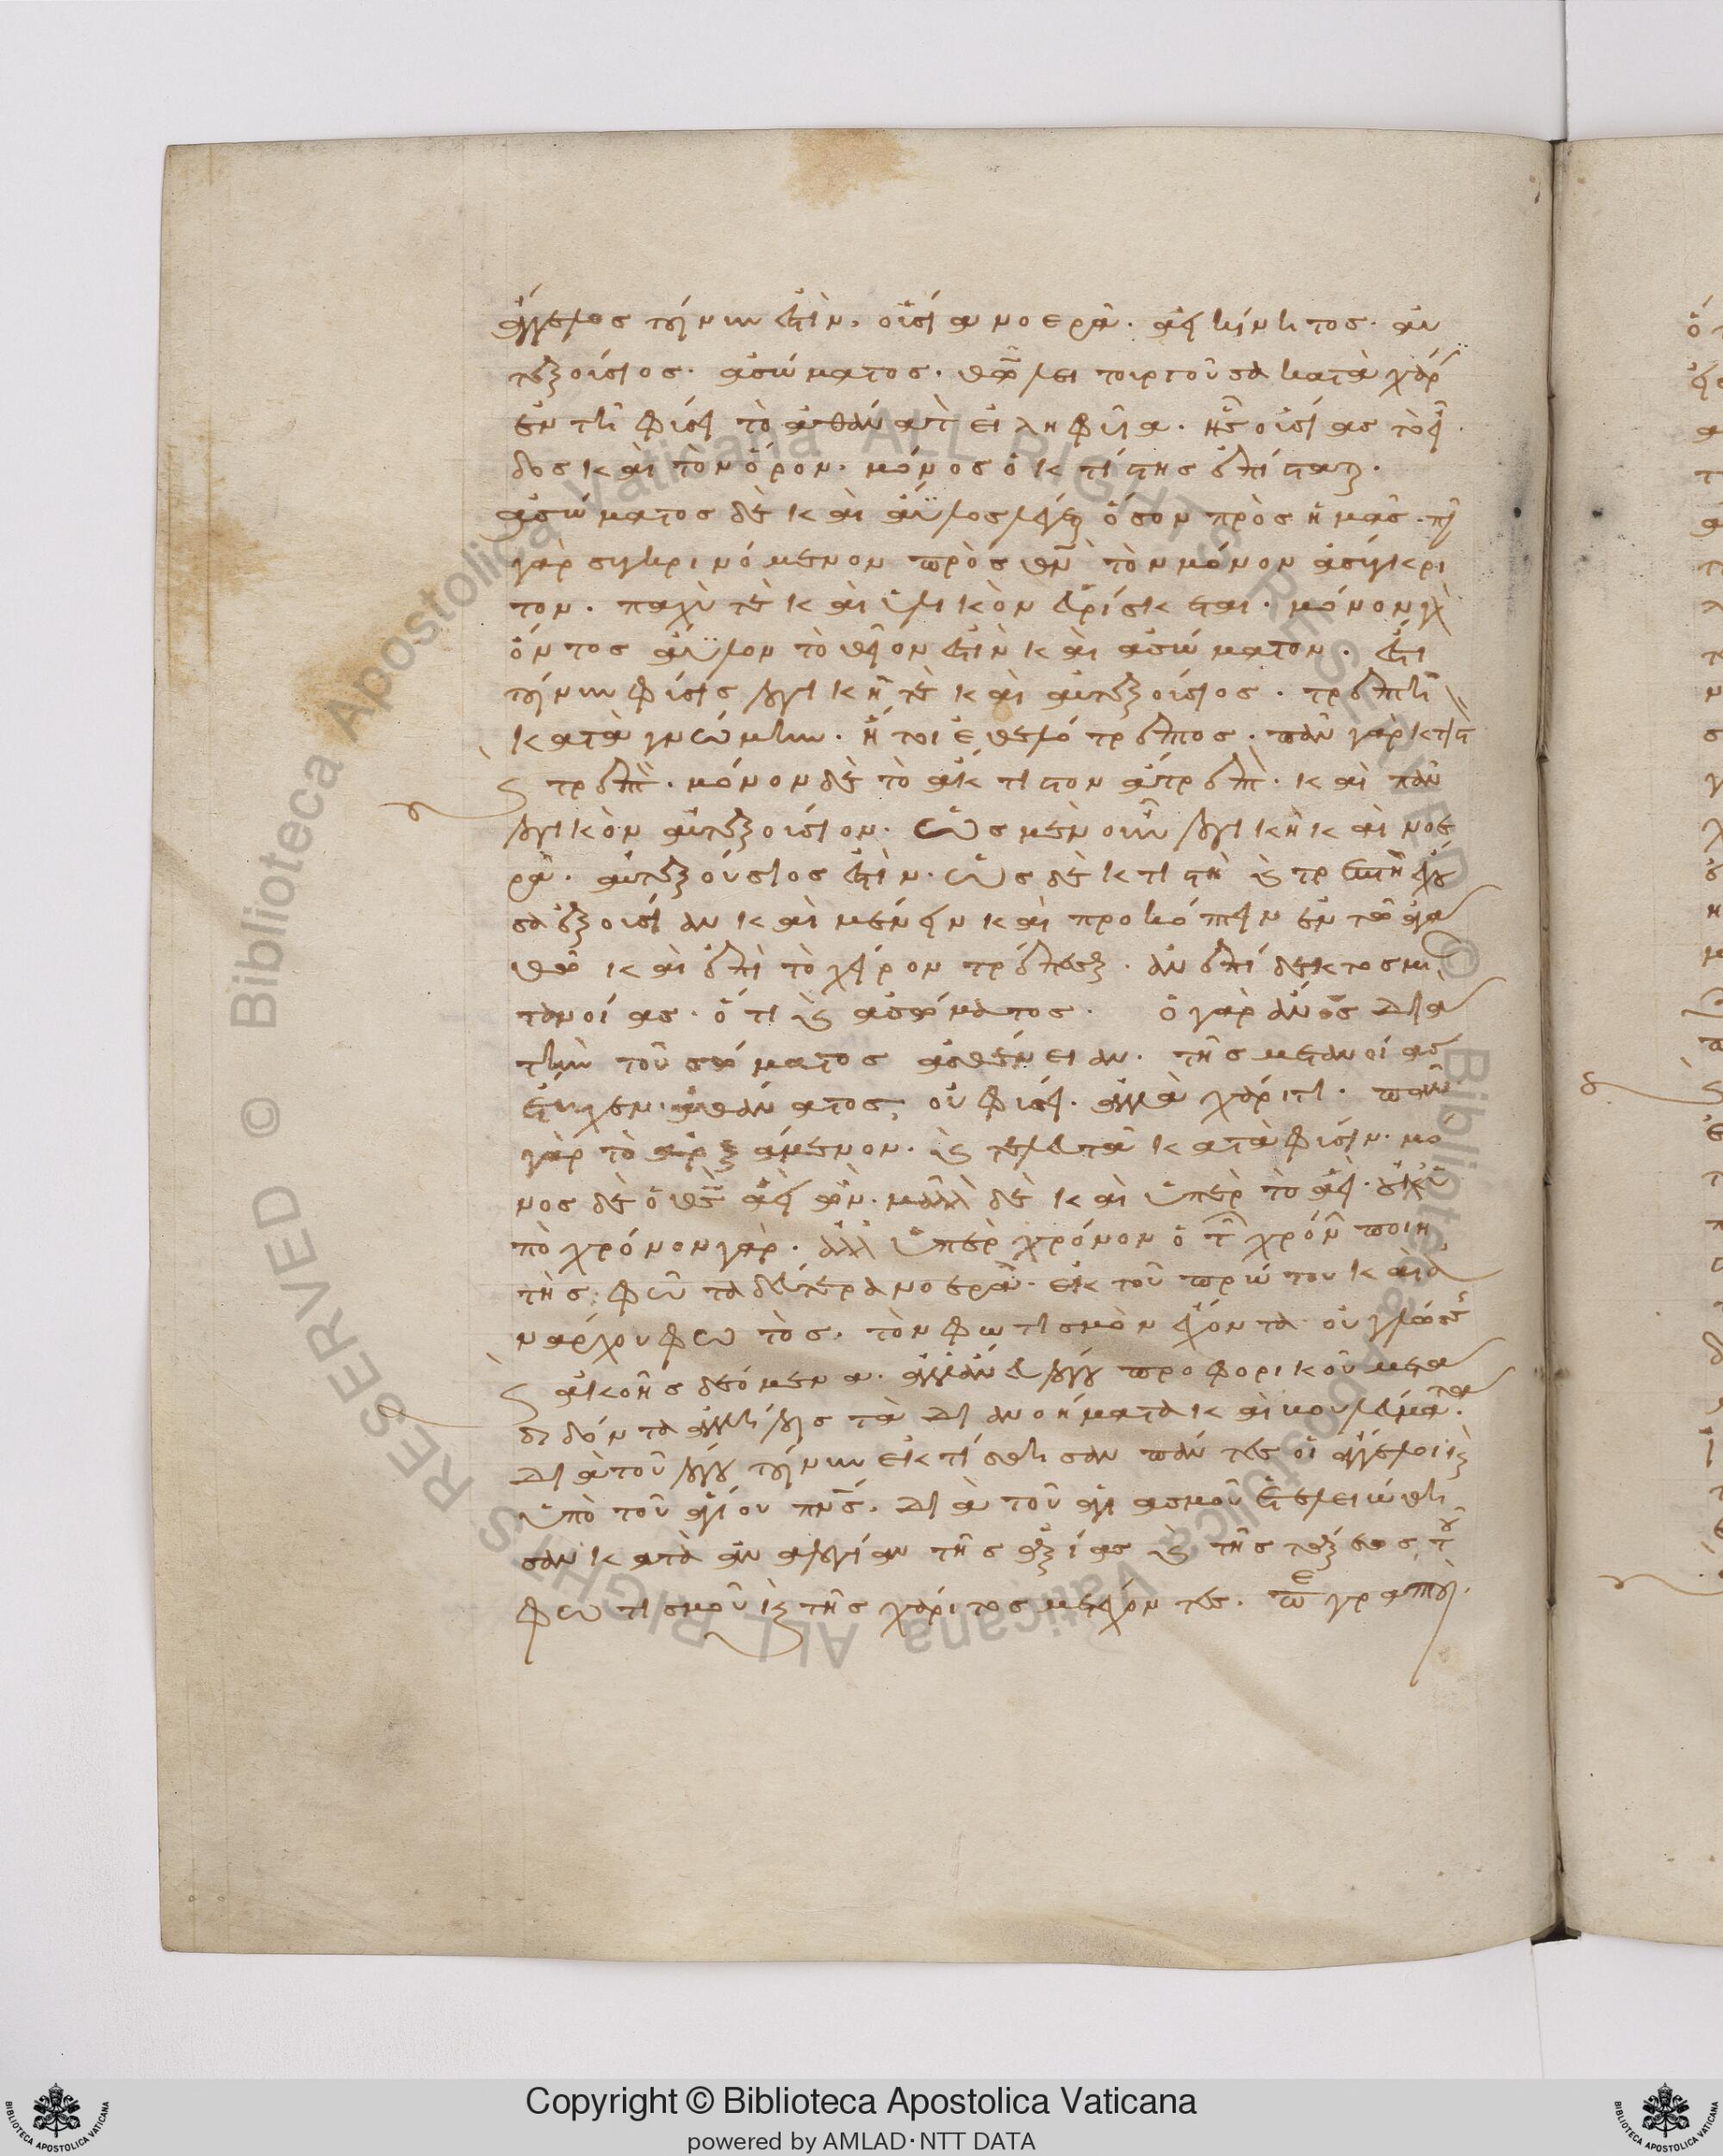 ἄγγελος τοίνυν ἐστὶν, οὐσία νοερὰ. ἀεικίνητος. αὐ
τεξούσιος. ἀσώματος. θεῷ λειτουργοῦσα κατὰ χάριν
ἐν τῆ φύσει τὸ ἀθάνατον εἰληφυῖα. ἧς οὐσίας τὸ εἶ
δος καὶ τὸν ὅρον. μόνος ὁ κτίστης ἐπίσταται.
ἀσώματος δὲ καὶ ἄϋλος λέγεται ὅσον πρὸς ἡμᾶς. πᾶν
γὰρ συγκρινόμενον πρὸς θν̅ τὸν μόνον ἀσύγκρι
τον. παχύ τε καὶ ὑλικὸν εὑρίσκεται. μόνον γὰρ
ὄντως ἄϋλον τὸ θεῖόν ἐστιν καὶ ἀσώματον. ἔστι
τοίνυν φύσις λογικὴ τὲ καὶ αὐτεξούσιος. τρεπτὴ
κατὰ γνώμην. ἤτοι ἐθελότρεπτος. πᾶν γὰρ κτιστὸν
τρεπτὸν. μόνον δὲ τὸ ἄκτιστον ἄτρεπτον. καὶ πᾶν
λογικὸν αὐτεξούσιον. ὡς μὲν οὖν λογικὴ καὶ νοε
ρὰ. αὐτεξούσιός ἐστιν. ὡς δὲ κτιστὴ καὶ τρεπτὴ ἔχου
σα ἐξουσίαν καὶ μένειν καὶ προκόπτειν ἐν τῶ ἀγα
θῶ καὶ ἐπὶ τὸ χεῖρον τρέπεσθαι. ἀνεπίδεκτος με
τανοίας. ὅτι καὶ ἀσώματος. ὁ γὰρ ἄνος̅ διὰ
τὴν τοῦ σώματος ἀσθένειαν. τῆς μετανοίας
ἔτυχεν. ἀθάνατος, οὐ φύσει. ἀλλὰ χάριτι. πᾶν
γὰρ τὸ ἀρξάμενον. καὶ τελευτᾶ κατὰ φύσιν. μό
νος δὲ ὁ θς̅ ἀεὶ ὢν. μᾶλλον δὲ καὶ ὑπὲρ τὸ ἀεὶ. οὐχ ὑ
πὸ χρόνον γὰρ. ἀλλ' ὑπὲρ χρόνον ὁ τῶν χρόνων ποιη
τής. φῶτα δεύτερα νοερὰ. ἐκ τοῦ πρώτου καὶ ἀ
νάρχου φωτὸς. τὸν φωτισμὸν ἔχοντα. οὐ γλώσσης
ἀκοῆς δεόμενα. ἀλλ' ἄνευ λόγου προφορικοῦ μετα
διδόντα ἀλλήλοις τὰ διανοήματα καὶ βουλεύματα.
διὰ τοῦ λόγου τοίνυν ἐκτίσθησαν πάντες οἱ ἄγγελοι καὶ
ὑπὸ τοῦ ἁγίου πνς̅. διὰ τοῦ ἁγιασμοῦ ἐτελειώθη
σαν κατὰ ἀναλογίαν τῆς ἀξίας καὶ τῆς τάξεως τοῦ
φωτισμοῦ καὶ τῆς χάριτος μετέχοντες. περιγραπτοὶ.
Copyright © Biblioteca Apostolica Vaticana
powered by AMLAD·NTT DATA